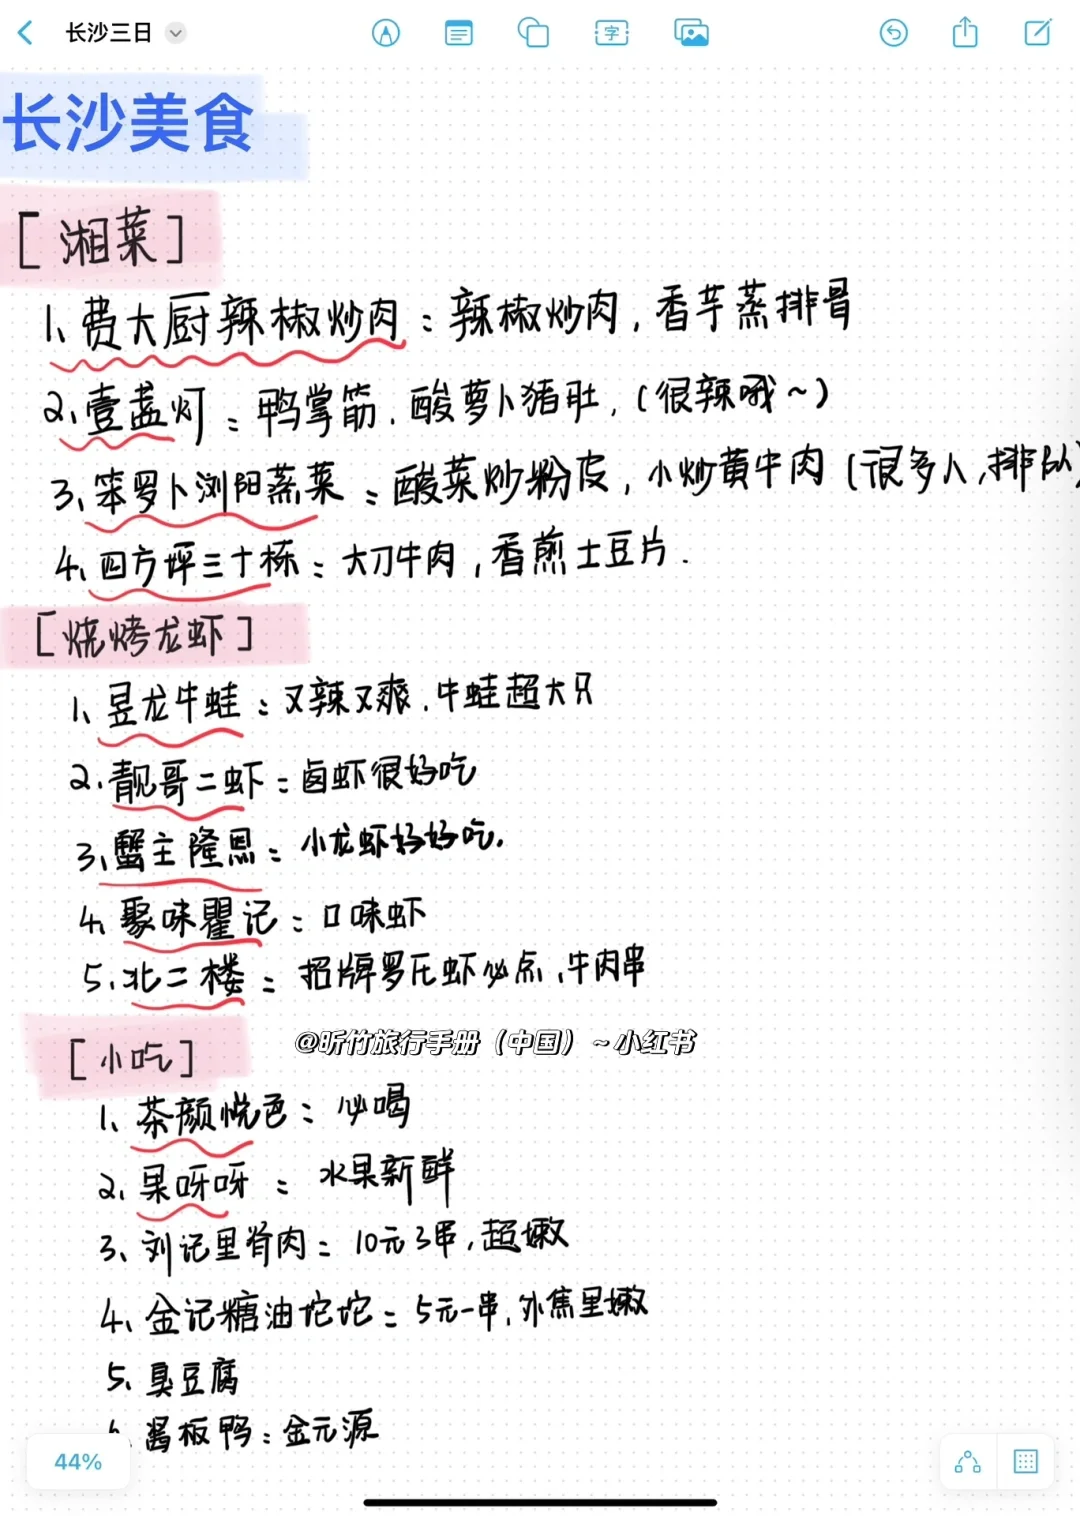 长沙三日
字
长沙美食
[湘菜]
1、费大厨辣椒炒肉：辣椒炒肉，香芋蒸排骨
2、壹盏灯：鸭掌筋、酸萝卜猪肚，(很辣哦~)
3、笨罗卜浏阳蒸菜：酸菜炒粉皮，小炒黄牛肉(很多人，排队)
4、四方坪三十栋：大刀牛肉，香煎土豆片.
[烧烤龙虾]
1、昱龙牛蛙：又辣又爽、牛蛙超大只
2、靓哥二虾：卤虾很好吃
3、蟹主隆恩：小龙虾好好吃.
4、聚味瞿记：口味虾
5、北二楼：招牌罗氏虾必点、牛肉串
@昕竹旅行手册（中国）~小红书
[小吃]
1、茶颜悦色：必喝
2、果呀呀：水果新鲜
3、刘记里脊肉：10元3串，超嫩
4、金记糖油坨坨：5元一串，外焦里嫩
5、臭豆腐
酱板鸭：金元源
44%